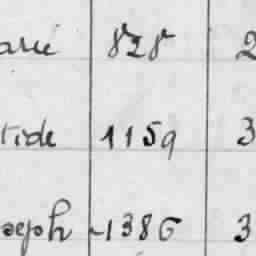 arie 828 2
tide 1159 3
oseph 1386 3